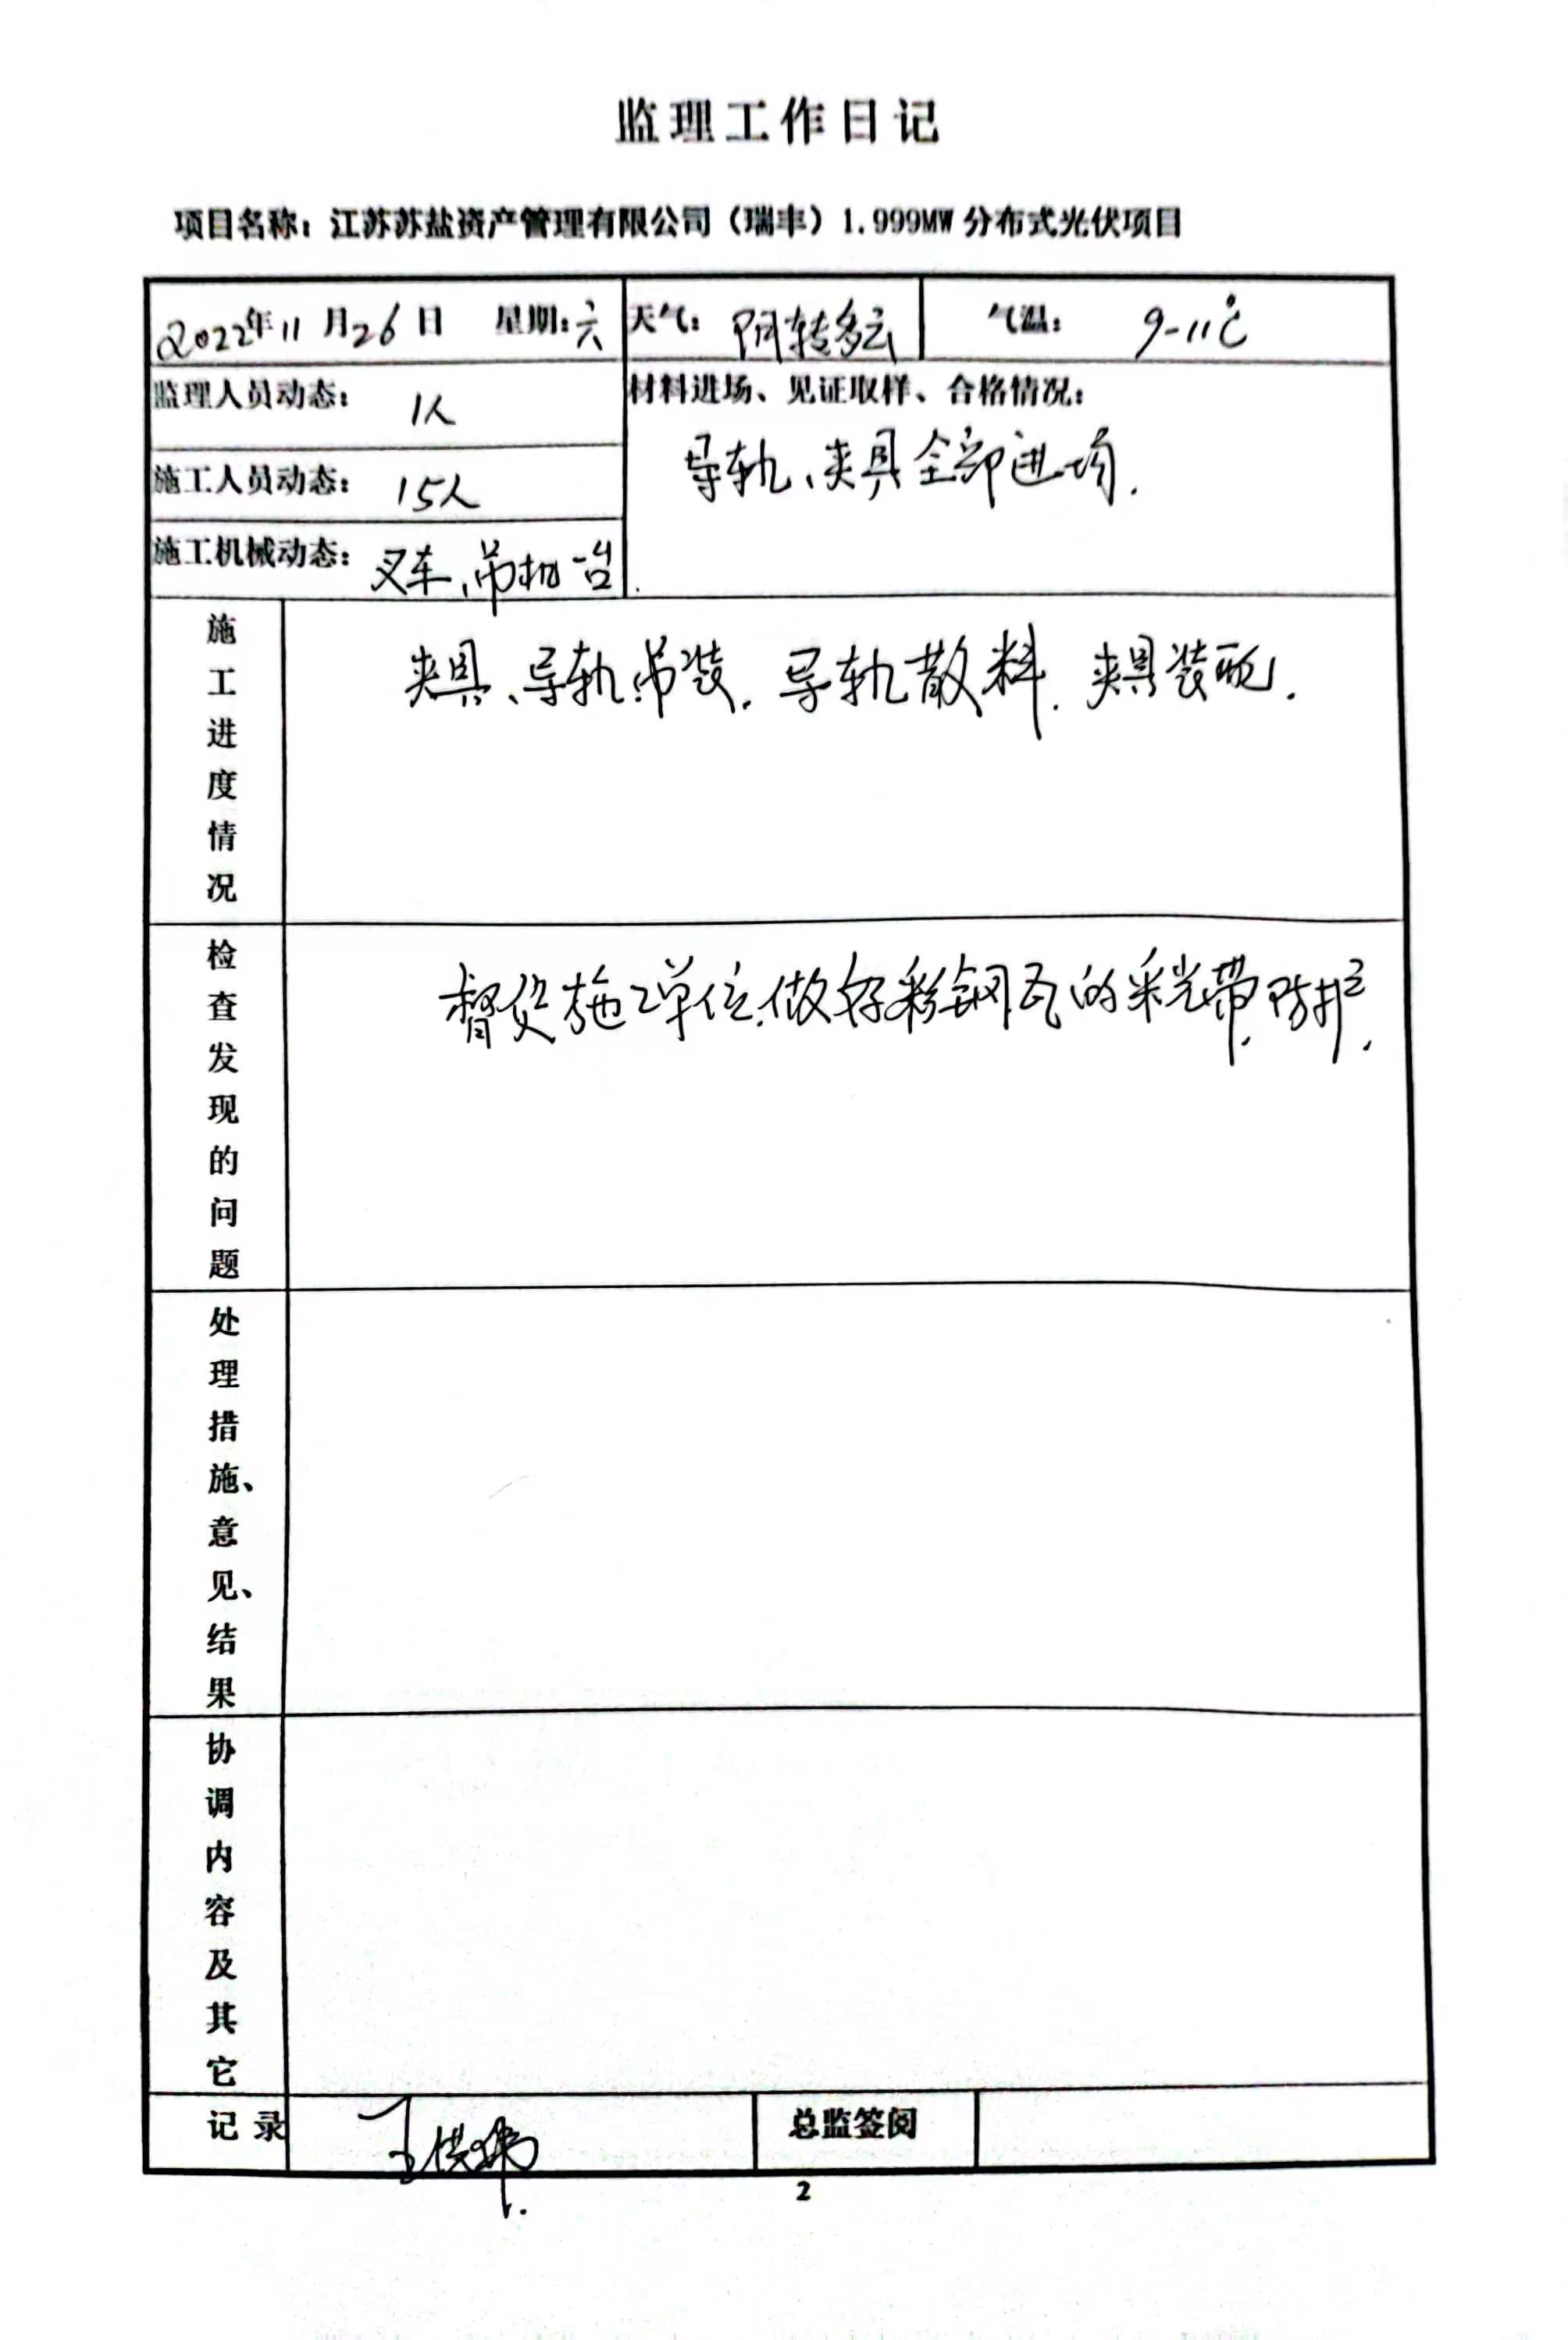 监理工作日记
项目名称：江苏苏盐资产管理有限公司（瑞丰）1.999MW 分布式光伏项目
2022年11月26日 星期：六 天气： 阴转多云 气温： 9-11℃
监理人员动态： 1人
材料进场、见证取样、合格情况：
导轨、夹具全部进场.
施工人员动态： 15人
施工机械动态： 叉车、吊机一台.
施工进度情况
夹具、导轨吊装. 导轨散料. 夹具装配.
检查发现的问题
督促施工单位做好彩钢瓦的采光带防护.
处理措施、意见、结果
协调内容及其它
记录 王
总监签阅
2